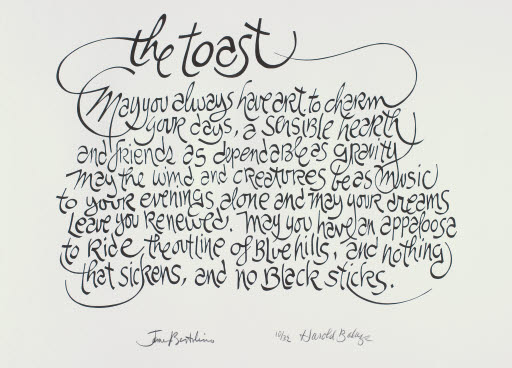 the toast
May you always have art to charm
your days, a sensible hearth
and friends as dependable as gravity
May the wind and creatures be as music
to your evenings alone and may your dreams
Leave you Renewed. May you have an appaloosa
to Ride the outline of Blue hills, and nothing
that sickens, and no Black sticks.
10/32 Harold Balazs